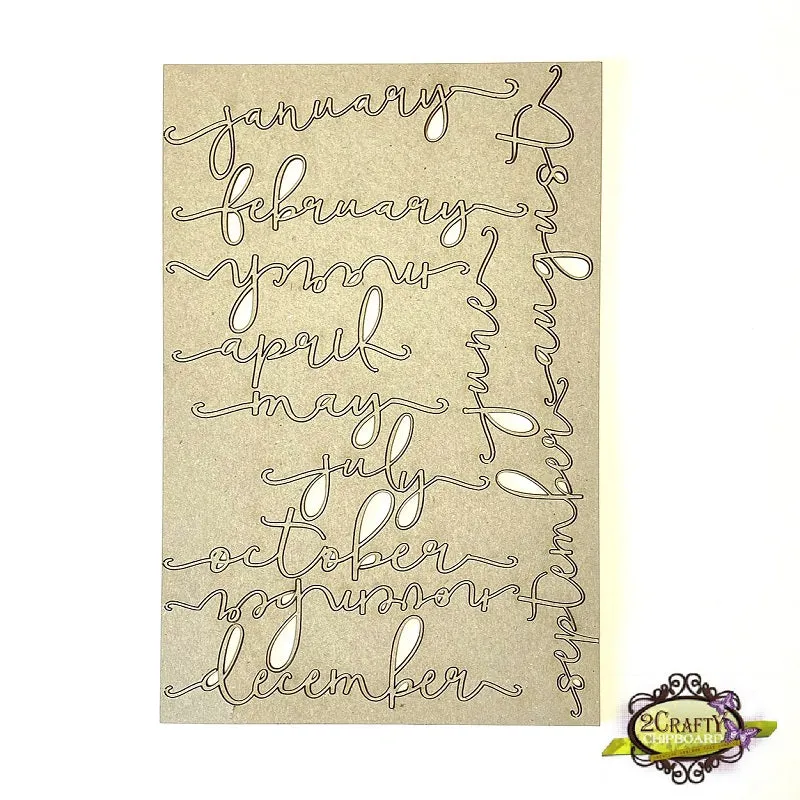 january
february
march
april
may
july
october
november
december
june
august
september
2CRAFTY
CHIPBOARD